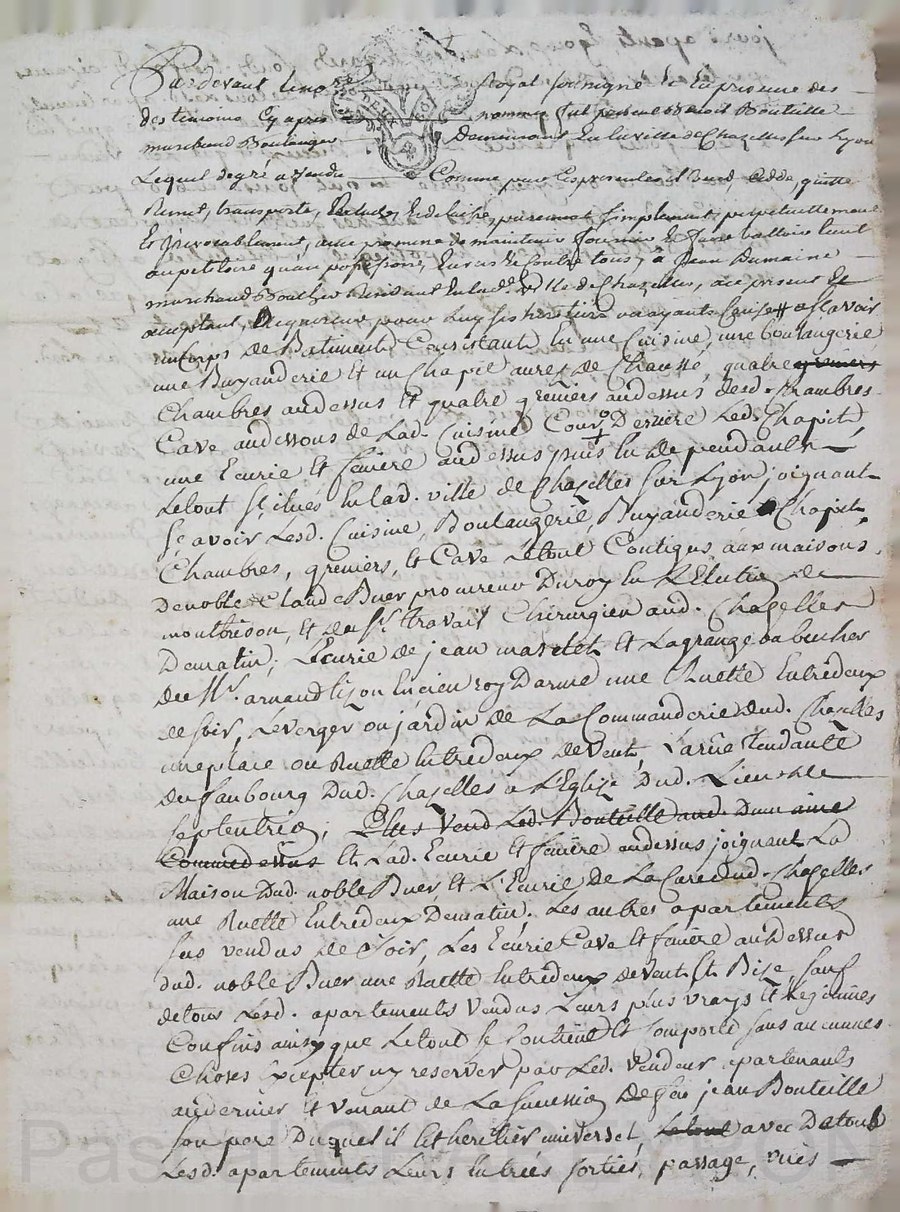 Pardevant le no.re Royal soussigné & en presence des
des temoins cy apres nommés fut present Benoit Bouteille
marchand Boulanger Demeurant en la ville de Chazelles sur Lyon
Lequel de gré a vendu Comme par Ces presentes il Vend, Cedde, quitte
Remet, transporte, purement simplement, perpetuellement
Et irrevocablement, avec promesse de maintenir fournir Et faire valloir tant
au petitoire qu'au possessoire, Envers & Contre tous, a Jean Dumaine
marchand Boucher Residant En lad. Ville de Chazelles, icy present &
acceptant, acquereur pour luy ses heritiers ou ayants Cause a scavoir
un Corps de Batiment Consistant En une Cuisine, une boulangerie
une Buyanderie Et un Chapit au rez de Chaussé, quatre greniers
Chambres au dessus Et quatre greniers au dessus desd. Chambres
Cave au dessous de Lad. Cuisine Cour Derriere Led. Chapit
une Ecurie Et feniere au dessus puis En dependants
Le tout situés En lad. ville de Chazelles sur Lyon, joignant
scavoir Lesd. Cuisine, Boulangerie, Buyanderie Chapit,
Chambres, greniers, Et Cave Le tout Contigus aux maisons
De noble Claude Buer procureur Du roy En L'Election de
montbrison, Et de Sr. travail Chirurgien aud. Chazelles
De matin, L'Ecurie de jean Et La grange ou bucher
de Mr. arnaud une Ruelle Entredeux
de soir, Le verger ou jardin de La Commanderie dud. Chazelles
une place ou Ruelle Entredeux de vent, La rüe tendante
Du faubourg Dud. Chazelles a L'Eglize Dud. Lieu de
septentrion; Plus vend Led. Bouteille aud. Dumaine
Comme dessus Et Lad. Ecurie Et feniere au dessus joignant La
Maison Dud. noble Buer Et L'Ecurie De La Cure dud. Chazelles
une Ruelle Entredeux De matin. Les autres apartements
sus vendus de soir, Les Ecurie Cave Et feniere au Dessus
dud. noble Buer une Ruelle Entredeux de vent Et Bise, sauf
de tous Lesd. apartements vendus Leurs plus vrays Et Legitimes
Confins ainsy que Le tout se Contient Et Comporte sans aucunes
Choses Excepter ny reserver par Led. vendeur apartenants
au dernier Et venant de La succession De feu jean Bouteille
son pere Duquel il Est heritier universel, Le tout avec De tous
Lesd. apartements Leurs Entrées sorties, passage, vües
Pascal